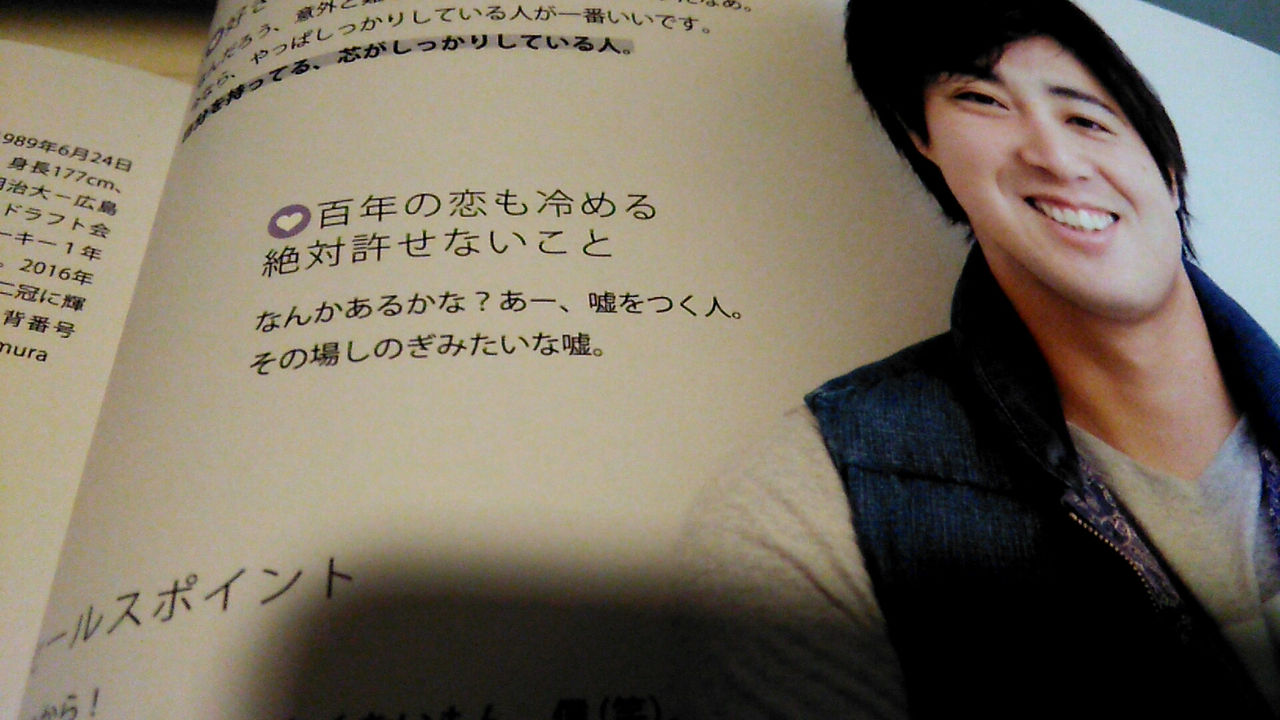 989年6月24日
身長177cm、
治大ー広島
ドラフト会
ーキー1年
。2016年
二冠に輝
背番号
mura
好き
んだろう、意外と難
なあ。
なら、やっぱしっかりしている人が一番いいです。
自分を持ってる、芯がしっかりしている人。
百年の恋も冷める
絶対許せないこと
なんかあるかな？あー、嘘をつく人。
その場しのぎみたいな嘘。
ールスポイント
から！
僕(笑)。